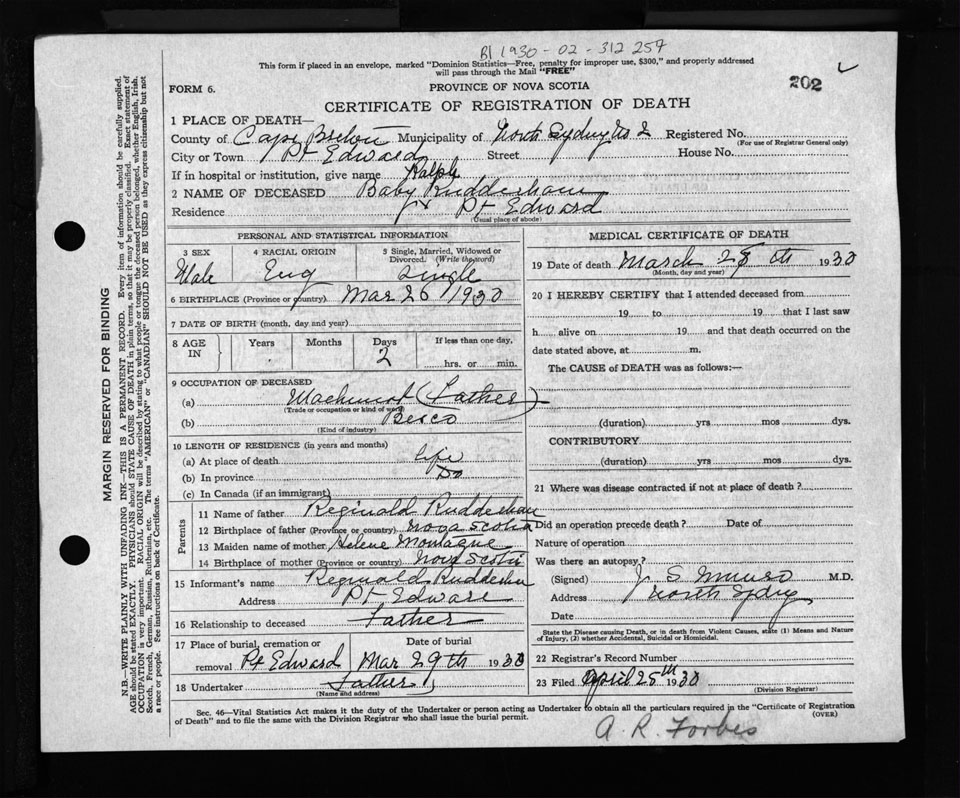 B1 1930 - 02 - 312 257
This form if placed in an envelope, marked "Dominion Statistics—Free, penalty for improper use, $300," and properly addressed
will pass through the Mail "FREE"
202
FORM 6.
PROVINCE OF NOVA SCOTIA
CERTIFICATE OF REGISTRATION OF DEATH
1 PLACE OF DEATH—
County of Cape Breton Municipality of North Sydney No 2 Registered No.
(For use of Registrar General only)
City or Town Pt Edward Street House No.
If in hospital or institution, give name Ralph
2 NAME OF DECEASED Baby Rudderham
Residence Pt Edward
(Usual place of abode)
PERSONAL AND STATISTICAL INFORMATION
3 SEX 4 RACIAL ORIGIN 5 Single, Married, Widowed or
Divorced. (Write the word)
Male Eng Single
6 BIRTHPLACE (Province or country) Mar 26 1930
7 DATE OF BIRTH (month, day and year)
8 AGE IN Years Months Days If less than one day,
2 hrs. or min.
9 OCCUPATION OF DECEASED
(a) Machinist (Father)
(Trade or occupation or kind of work)
(b) Besco
(Kind of industry)
10 LENGTH OF RESIDENCE (in years and months)
(a) At place of death life
(b) In province Do
(c) In Canada (if an immigrant)
Parents
11 Name of father Reginald Rudderham
12 Birthplace of father (Province or country) Nova Scotia
13 Maiden name of mother Helene Montague
14 Birthplace of mother (Province or country) Nova Scotia
15 Informant's name Reginald Rudderham
Address Pt Edward
16 Relationship to deceased Father
17 Place of burial, cremation or Date of burial
removal Pt Edward Mar 29th 1930
18 Undertaker Father
(Name and address)
MEDICAL CERTIFICATE OF DEATH
19 Date of death March 28th 1930
(Month, day and year)
20 I HEREBY CERTIFY that I attended deceased from
19 to 19 that I last saw
h alive on 19 and that death occurred on the
date stated above, at m.
The CAUSE of DEATH was as follows:—
(duration) yrs mos dys.
CONTRIBUTORY
(duration) yrs. mos. dys.
21 Where was disease contracted if not at place of death?
Did an operation precede death? Date of
Nature of operation
Was there an autopsy?
(Signed) J. S. Munro M.D.
Address North Sydney
Date
State the Disease causing Death, or in death from Violent Causes, state (1) Means and Nature
of Injury, (2) whether Accidental, Suicidal or Homicidal.
22 Registrar's Record Number
23 Filed April 25th 1930
(Division Registrar)
Sec. 46—Vital Statistics Act makes it the duty of the Undertaker or person acting as Undertaker to obtain all the particulars required in the "Certificate of Registration
of Death" and to file the same with the Division Registrar who shall issue the burial permit.
(OVER)
A. R. Forbes
MARGIN RESERVED FOR BINDING
N.B.—WRITE PLAINLY WITH UNFADING INK—THIS IS A PERMANENT RECORD. Every item of information should be carefully supplied.
AGE should be stated EXACTLY. PHYSICIANS should STATE CAUSE OF DEATH in plain terms, so that it may be properly classified. Exact statement of
OCCUPATION is very important. RACIAL ORIGIN will be described by stating to what people or tongue the deceased person belonged, whether English, Irish,
Scotch, French, German, Russian, Ruthenian, etc. The terms "AMERICAN" or "CANADIAN" SHOULD NOT BE USED as they express citizenship but not
a race or people. See instructions on back of Certificate.